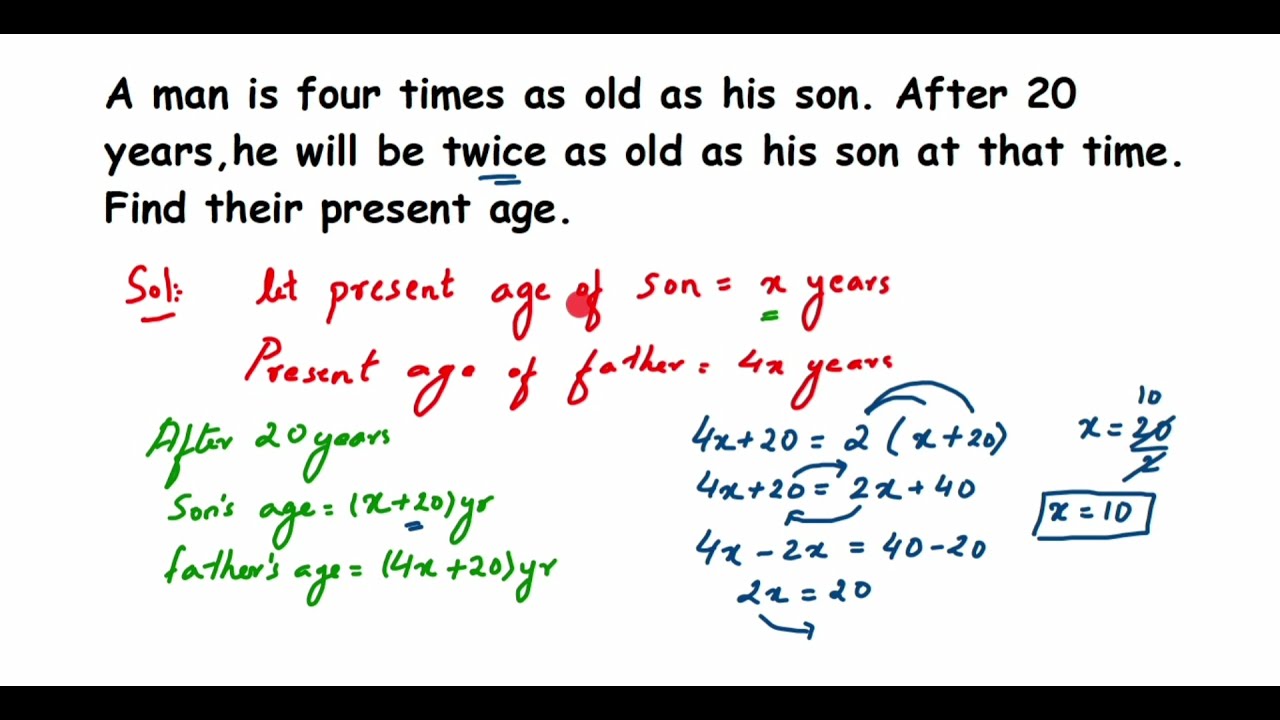 A man is four times as old as his son. After 20
years,he will be twice as old as his son at that time.
Find their present age.
Sol: let present age of son = x years
Present age of father = 4x years
After 20 years
Son's age = (x+20) yr
father's age = (4x+20) yr
4x+20 = 2 (x+20)
4x+20 = 2x+40
4x - 2x = 40-20
2x = 20
10
x = 20
2
x = 10